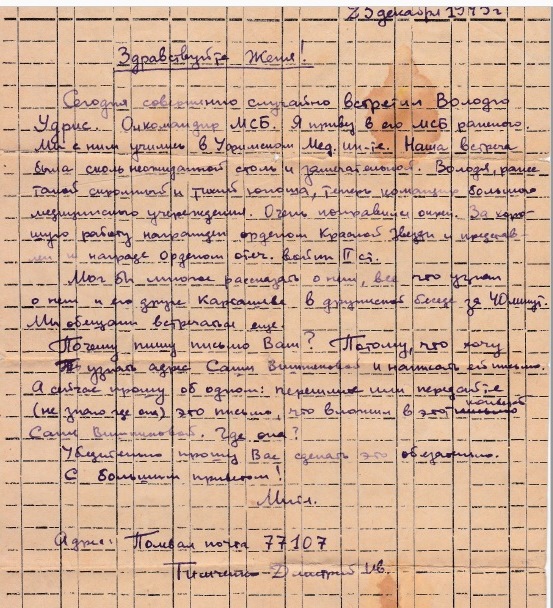 25 декабря 1943 г
Здравствуйте Женя!
Сегодня совершенно случайно встретил Володю
Удрис. Он командир МСБ. Я привёз в его МСБ раненого.
Мы с ним учились в Уфимском Мед. ин-те. Наша встреча
была столь неожиданной столь и замечательной. Володя, ранее
такой скромный и тихий юноша, теперь командир большого
медицинского учреждения. Очень понравился он мне. За хоро-
шую работу награжден орденом Красной Звезды и представ-
лен к награде Орденом отеч. войны II ст.
Мог бы многое рассказать о нем, все что узнал
о нем и его друге в дружеской беседе за 40 минут.
Мы обещали встречаться еще.
Почему пишу письмо Вам? Потому, что хочу
узнать адрес Саши и написать ей письмо.
А сейчас прошу об одном: перешлите или передайте
(не знаю где она) это письмо, что вложил в этот конверт
Саше. Где она?
Убедительно прошу Вас сделать это обязательно.
С большим приветом!
Митя.
Адрес: Полевая почта 77107
Тимченко Дмитрий Ив.